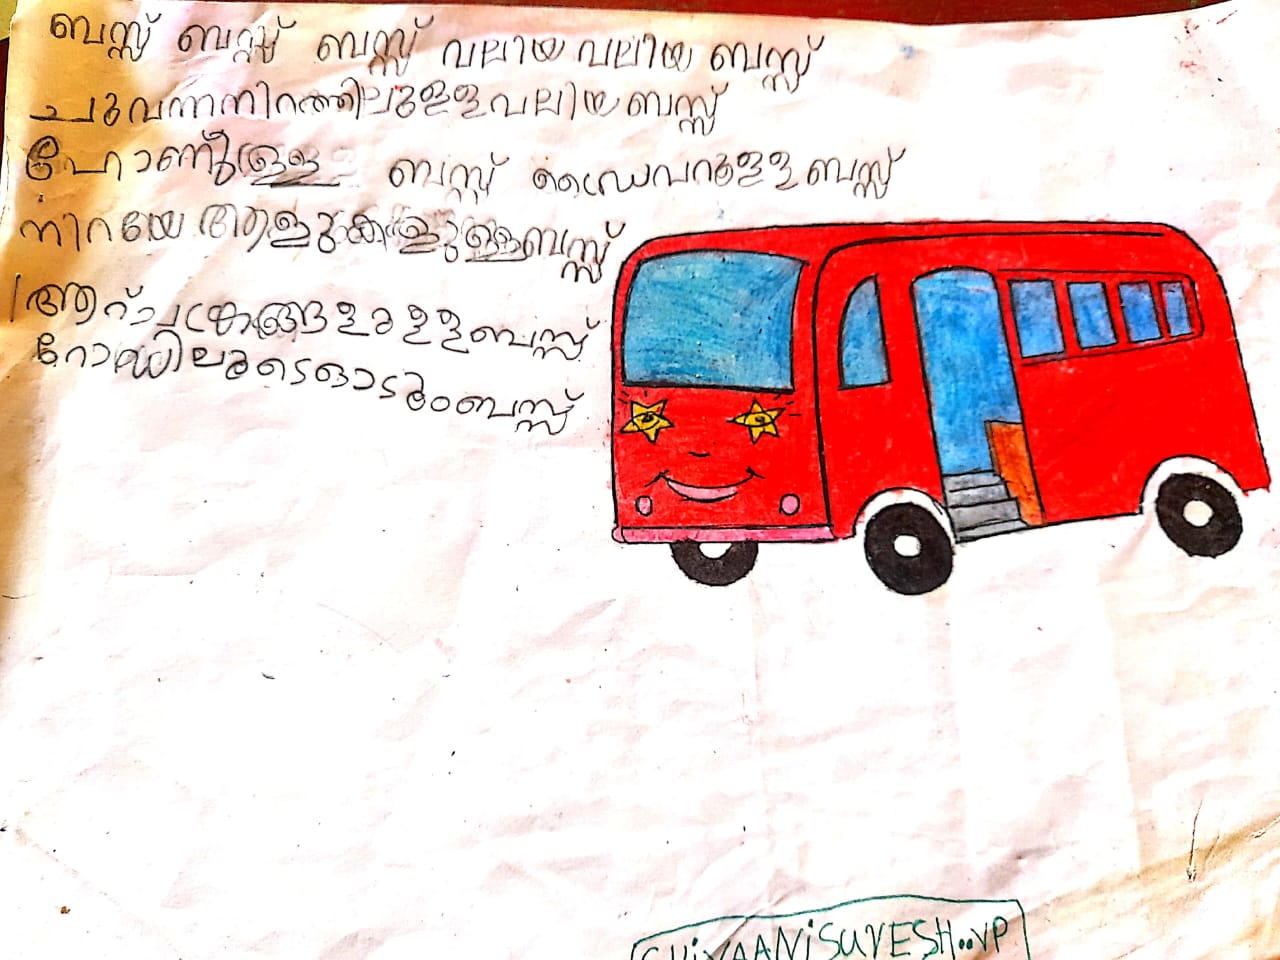 ബസ്സ് ബസ്സ് ബസ്സ് വലിയ വലിയ ബസ്സ്
ചുവന്നനിറത്തിലുള്ള വലിയ ബസ്സ്
ഹോണുള്ള ബസ്സ് ഡ്രൈവറുള്ള ബസ്സ്
നിറയേ ആളുകളുള്ള ബസ്സ്
ആറ് ചക്രങ്ങളുള്ള ബസ്സ്
റോഡിലൂടെ ഓടും ബസ്സ്
SHIVAANiSUVESH..VP